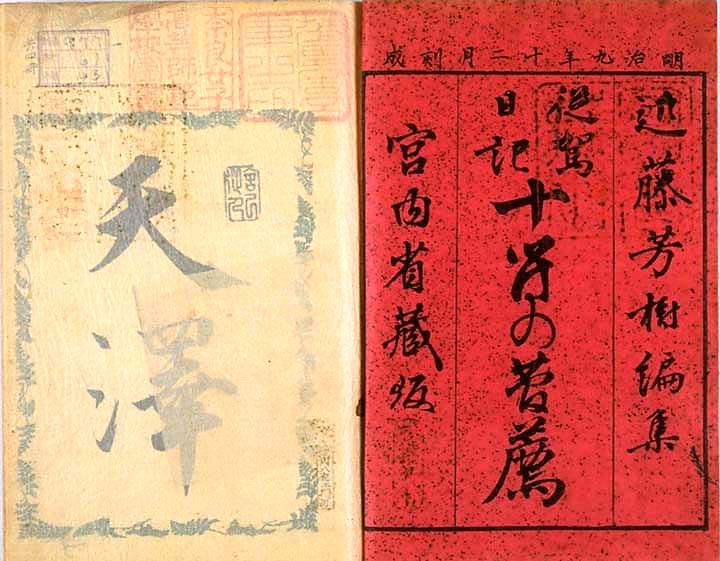 明治九年十二月刻成
近藤芳樹編集
從駕日記
十符の菅薦
宮内省藏版
天澤